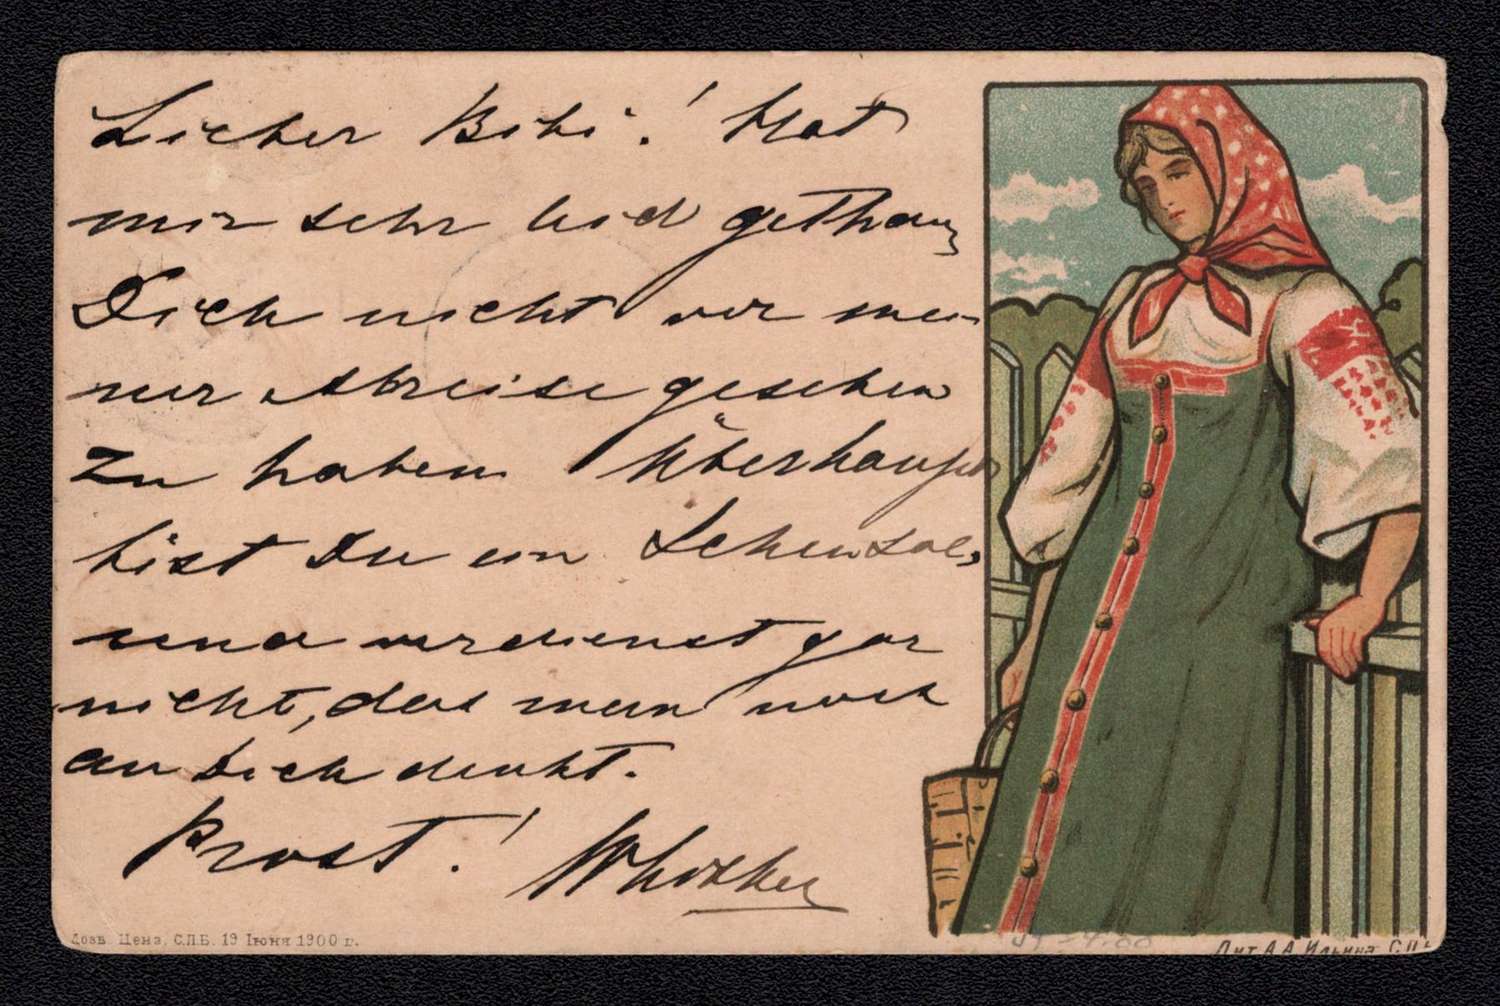 Lieber Bibi! Hat
mir sehr leid gethan,
Dich nicht vor mei-
ner Abreise gesehen
zu haben. Überhaupt
bist Du ein
und verdienst gar
nicht, das man noch
an Dich denkt.
Prost!
Дозв. Ценз. С.П.Б. 19 Іюня 1900 г.
Лит. А.А. Ильина С.П.Б.